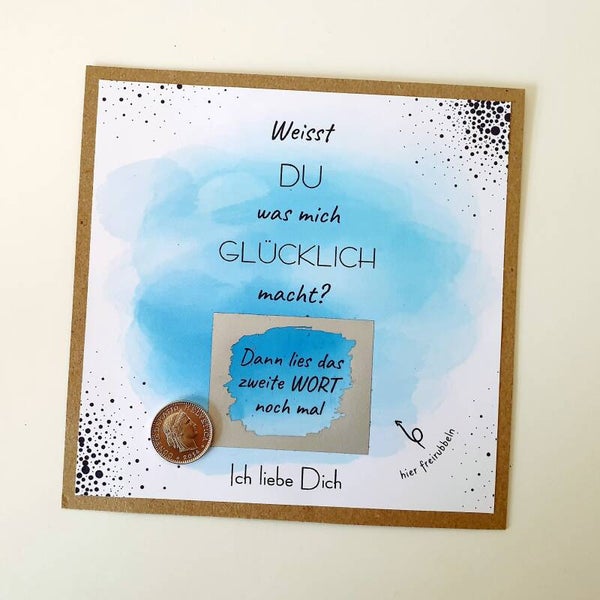 Weisst
DU
was mich
GLÜCKLICH
macht?
Dann lies das
zweite WORT
noch mal
hier freirubbeln
Ich liebe Dich